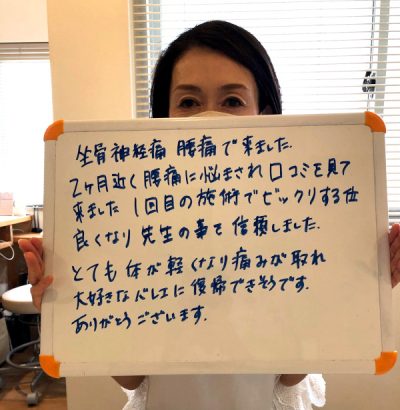 坐骨神経痛 腰痛で来ました.
2ヶ月近く腰痛に悩まされ口コミを見て
来ました 1回目の施術でビックリする位
良くなり 先生の事を信頼しました.
とても体が軽くなり痛みが取れ
大好きなバレエに復帰できそうです.
ありがとうございます.